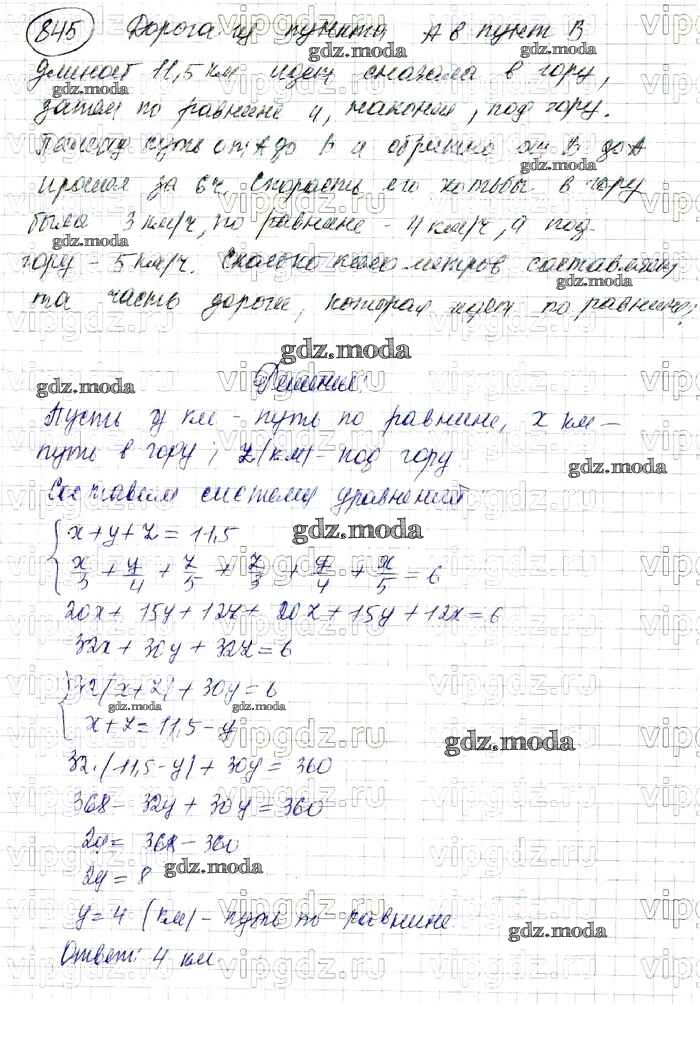 845 Дорога из пункта А в пункт В
длиной 11,5 км идет сначала в гору,
затем по равнине и, наконец, под гору.
путь от А до В и обратно от В до А
прошел за 6ч. Скорость его ходьбы в гору
была 3 км/ч, по равнине - 4 км/ч, а под
гору - 5 км/ч. Сколько километров составляет
та часть дороги, которая идет по равнине?
Решение:
Пусть y км - путь по равнине, x км -
путь в гору, z(км) - под гору
Составим систему уравнений
x + y + z = 11,5
x/3 + y/4 + z/5 + z/3 + y/4 + x/5 = 6
20x + 15y + 12z + 20x + 15y + 12x = 6
32x + 30y + 32z = 6
32(x + z) + 30y = 6
x + z = 11,5 - y
32 · (11,5 - y) + 30y = 360
368 - 32y + 30y = 360
2y = 368 - 360
2y = 8
y = 4 (км) - путь по равнине.
Ответ: 4 км.
gdz.moda
vipgdz.ru